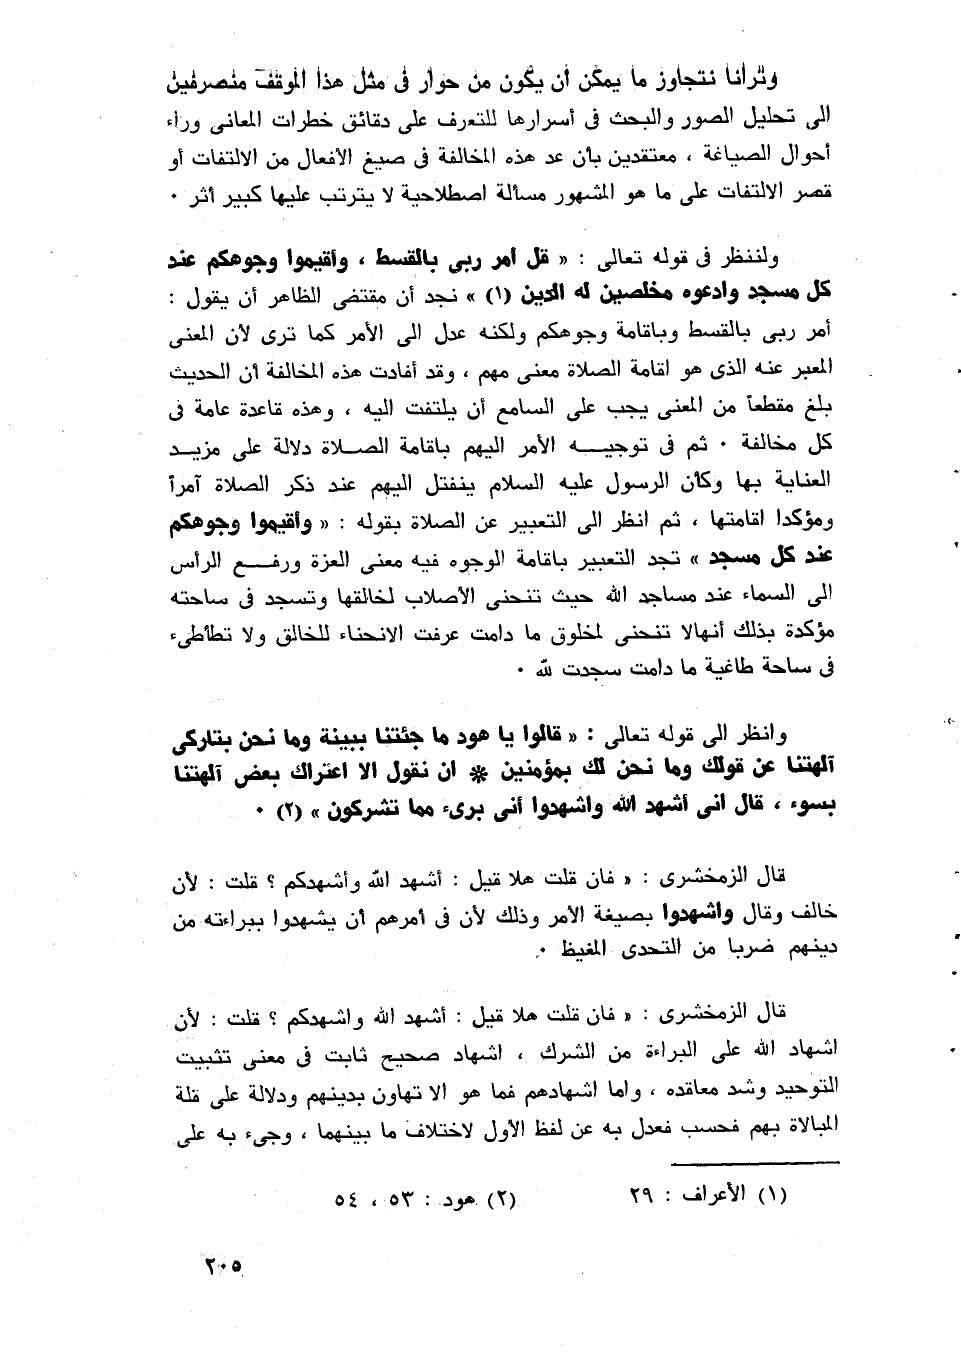 وترانا نتجاوز ما يمكن أن يكون من حوار فى مثل هذا الموقف منصرفين
الى تحليل الصور والبحث فى أسرارها للتعرف على دقائق خطرات المعانى وراء
أحوال الصياغة ، معتقدين بأن عد هذه المخالفة فى صيغ الأفعال من الالتفات أو
قصر الالتفات على ما هو المشهور مسألة اصطلاحية لا يترتب عليها كبير أثر ٠
ولننظر فى قوله تعالى : « قل أمر ربى بالقسط ، وأقيموا وجوهكم عند
كل مسجد وادعوه مخلصين له الدين (١) » نجد أن مقتضى الظاهر أن يقول :
أمر ربى بالقسط وباقامة وجوهكم ولكنه عدل الى الأمر كما ترى لأن المعنى
المعبر عنه الذى هو اقامة الصلاة معنى مهم ، وقد أفادت هذه المخالفة أن الحديث
بلغ مقطعاً من المعنى يجب على السامع أن يلتفت اليه ، وهذه قاعدة عامة فى
كل مخالفة ٠ ثم فى توجيـــه الأمر اليهم باقامة الصـلاة دلالة على مزيـد
العناية بها وكأن الرسول عليه السلام ينفتل اليهم عند ذكر الصلاة آمراً
ومؤكدا اقامتها ، ثم انظر الى التعبير عن الصلاة بقوله : « وأقيموا وجوهكم
عند كل مسجد » تجد التعبير باقامة الوجوه فيه معنى العزة ورفـــع الرأس
الى السماء عند مساجد الله حيث تنحنى الأصلاب لخالقها وتسجد فى ساحته
مؤكدة بذلك أنهالا تنحنى لمخلوق ما دامت عرفت الانحناء للخالق ولا تطأطىء
فى ساحة طاغية ما دامت سجدت لله ٠
وانظر الى قوله تعالى : « قالوا يا هود ما جئتنا ببينة وما نحن بتاركى
آلهتنا عن قولك وما نحن لك بمؤمنين * ان نقول الا اعتراك بعض آلهتنا
بسوء ، قال انى أشهد الله واشهدوا أنى برىء مما تشركون » (٢) ٠
قال الزمخشرى : « فان قلت هلا قيل : أشهد الله وأشهدكم ؟ قلت : لأن
خالف وقال واشهدوا بصيغة الأمر وذلك لأن فى أمرهم أن يشهدوا ببراءته من
دينهم ضربا من التحدى المغيظ ٠
قال الزمخشرى : « فان قلت هلا قيل : أشهد الله واشهدكم ؟ قلت : لأن
اشهاد الله على البراءة من الشرك ، اشهاد صحيح ثابت فى معنى تثبيت
التوحيد وشد معاقده ، وأما اشهادهم فما هو الا تهاون بدينهم ودلالة على قلة
المبالاة بهم فحسب فعدل به عن لفظ الأول لاختلاف ما بينهما ، وجىء به على
(١) الأعراف : ٢٩
(٢) هود : ٥٣ ، ٥٤
٢٠٥